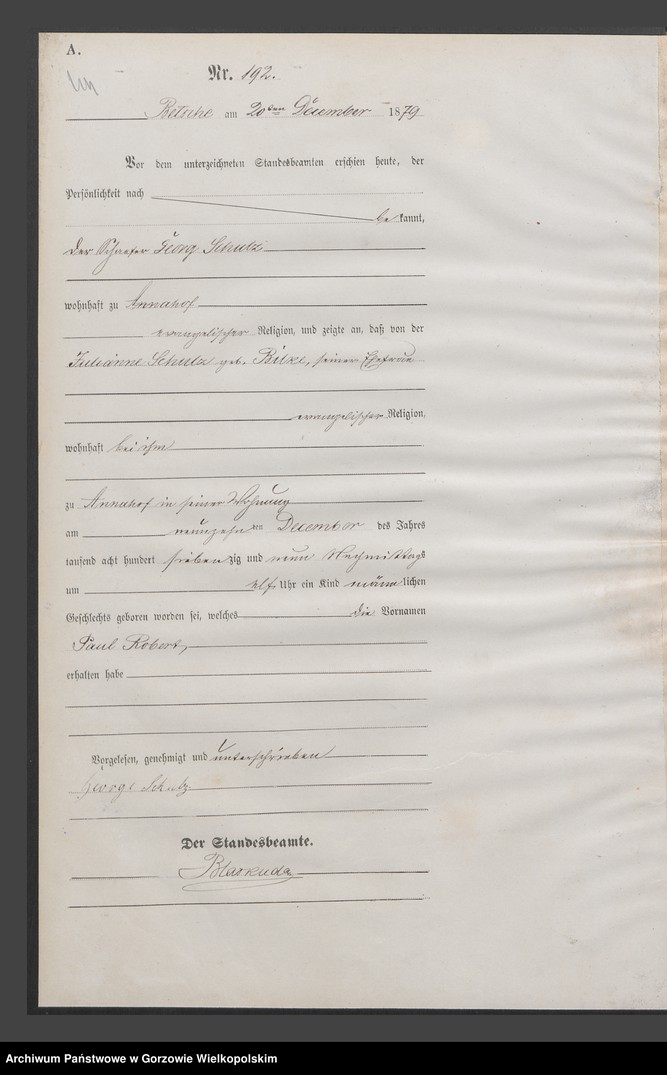 A.
Nr. 192.
Betsche am 20ten December 1879
Vor dem unterzeichneten Standesbeamten erschien heute, der
Persönlichkeit nach
be kannt,
der Schaefer Georg Schulz
wohnhaft zu Annahof
evangelischer Religion, und zeigte an, daß von der
Julianne Schulz geb. seiner Ehefrau
evangelischer Religion,
wohnhaft bei ihm
zu Annahof in seiner Wohnung
am neunzehnten December des Jahres
tausend acht hundert siebenzig und neun Nachmittags
um elf Uhr ein Kind männlichen
Geschlechts geboren worden sei, welches die Vornamen
Paul Robert,
erhalten habe
Vorgelesen, genehmigt und unterschrieben
George Schulz.
Der Standesbeamte.
Archiwum Państwowe w Gorzowie Wielkopolskim